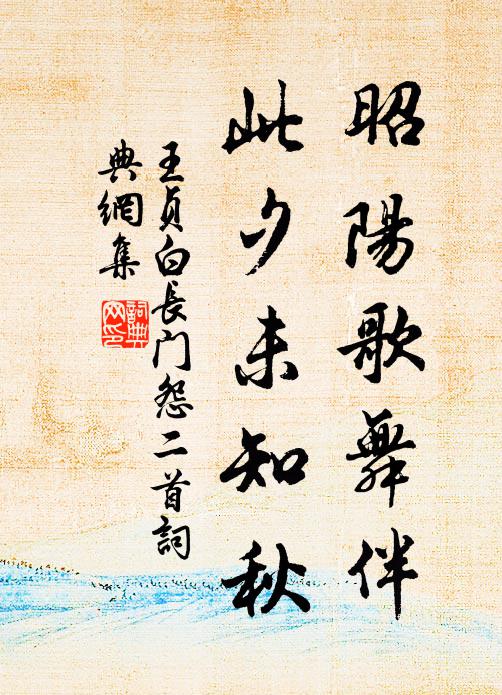 昭陽歌舞伴
此夕未知秋
王貞白長門怨二首詞
典網集
詞典
网印